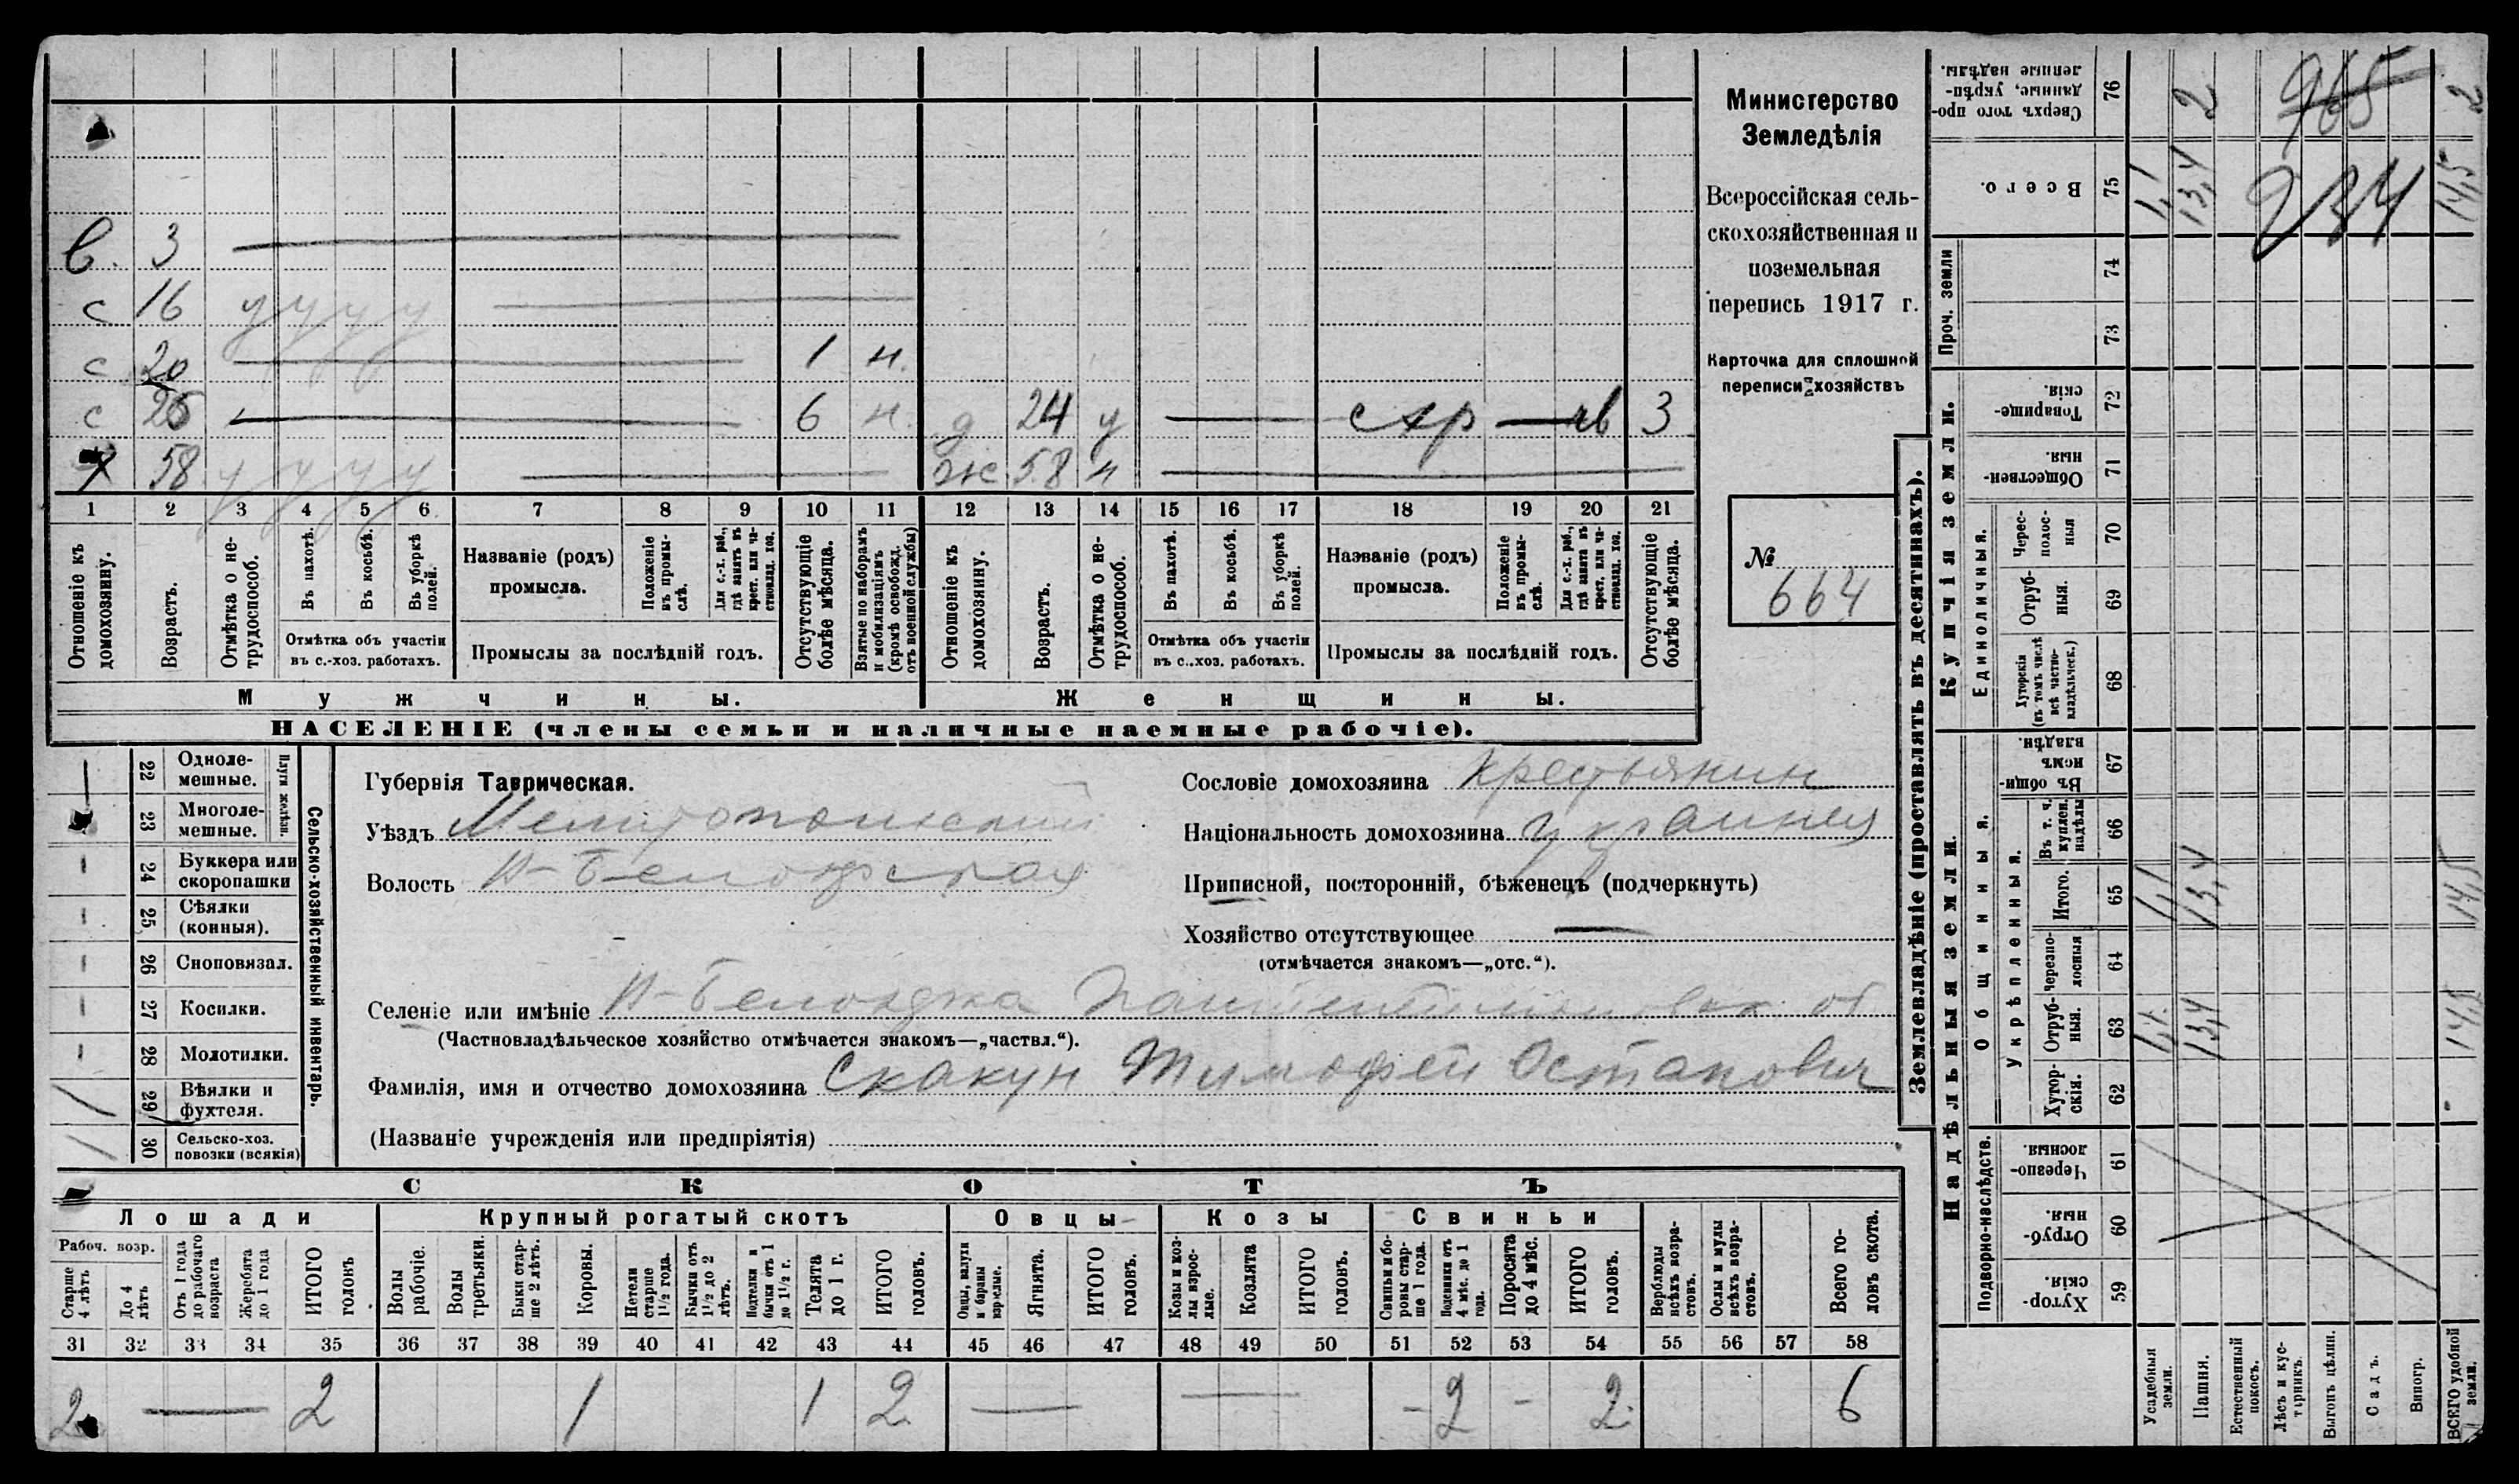 Министерство
Земледѣлія
Всероссійская сель-
скохозяйственная и
поземельная
перепись 1917 г.
Карточка для сплошной
переписи хозяйствъ
№
664
в. 3
с 16 у у у у
с 20 1 н.
с 26 6 н. д 24 у 3
х 58 у у у у ж 58 н
1 2 3 4 5 6 7 8 9 10 11 12 13 14 15 16 17 18 19 20 21
Отношеніе къ домохозяину.
Возрастъ.
Отмѣтка о не-трудоспособ.
Въ пахотѣ.
Въ косьбѣ.
Въ уборкѣ полей.
Отмѣтка объ участіи
въ с.-хоз. работахъ.
Названіе (родъ)
промысла.
Положеніе въ промы-слѣ.
Для с.-х. раб., гдѣ занятъ въ крест. или ча-стновлад. хоз.
Промыслы за послѣдній годъ.
Отсутствующіе болѣе мѣсяца.
Взятые по наборамъ и мобилизаціямъ (кромѣ освобожд. отъ военной службы)
Отношеніе къ домохозяину.
Возрастъ.
Отмѣтка о не-трудоспособ.
Въ пахотѣ.
Въ косьбѣ.
Въ уборкѣ полей.
Отмѣтка объ участіи
въ с..хоз. работахъ.
Названіе (родъ)
промысла.
Положеніе въ промы-слѣ.
Для с.-х. раб., гдѣ занятъ въ крест. или ча-стновлад. хоз.
Промыслы за послѣдній годъ.
Отсутствующіе болѣе мѣсяца.
Мужчины.
Женщины.
НАСЕЛЕНІЕ (члены семьи и наличные наемные рабочіе).
Сельско-хозяйственный инвентарь.
Плуги желѣзн.
22 Одноле-мешные.
23 Многоле-мешные.
24 Буккера или скоропашки
25 Сѣялки (конныя).
26 Сноповязал.
27 Косилки.
28 Молотилки.
29 Вѣялки и фухтеля. 1
30 Сельско-хоз. повозки (всякія) 1
Губернія Таврическая.
Уѣздъ Мелитопольский
Волость Н-Белозерская
Сословіе домохозяина Крестьянин
Національность домохозяина Украинец
Приписной, посторонній, бѣженецъ (подчеркнуть)
Хозяйство отсутствующее
(отмѣчается знакомъ—„отс.“).
Селеніе или имѣніе Н-Белозерка
(Частновладѣльческое хозяйство отмѣчается знакомъ—„частвл.“).
Фамилія, имя и отчество домохозяина Скакун Тимофей Остапович
(Названіе учрежденія или предпріятія)
СКОТЪ
Лошади
Крупный рогатый скотъ
Овцы
Козы
Свиньи
Рабоч. возр.
Старше 4 лѣтъ
До 4 лѣтъ
Отъ 1 года до рабочаго возраста
Жеребята до 1 года
ИТОГО головъ
Волы рабочіе.
Волы третьяки.
Быки стар-ше 2 лѣтъ.
Коровы.
Нетели старше 1½ года.
Бычки отъ 1½ до 2 лѣтъ.
Подтелки и бычки отъ 1 до 1½ г.
Телята до 1 г.
ИТОГО головъ.
Овцы, валухи и бараны взрослые.
Ягнята.
ИТОГО головъ.
Козы и коз-лы взрос-лые.
Козлята
ИТОГО головъ.
Свиньи и бо-ровы стар-ше 1 года.
Подсвинки отъ 4 мѣс. до 1 года.
Поросята до 4 мѣс.
ИТОГО головъ.
Верблюды всѣхъ возра-стовъ.
Ослы и мулы всѣхъ возра-стовъ.
Всего го-ловъ скота.
31 32 33 34 35 36 37 38 39 40 41 42 43 44 45 46 47 48 49 50 51 52 53 54 55 56 57 58
2 — 2 1 1 2 — — - 2 - 2 6
Землевладѣніе (проставлять въ десятинахъ).
Надѣльныя земли.
Купчія земли.
Проч. земли
Подворно-наслѣдств.
Общинныя.
Укрѣпленныя.
Единоличныя.
Сверхъ того про-данные, укрѣп-ленные надѣлы. 76 2 965 2
Всего. 75 1,1 13,4 234 14,5
74
73
Товарище-скія. 72
Обществен-ныя. 71
Черес-полос-ныя 70
Отруб-ныя. 69
Хуторскія (въ томъ числѣ всѣ частно-владѣльческ.) 68
Въ общи-номъ владѣн. 67
Въ т. ч. куплен. надѣлы 66
Итого. 65 1,1 13,4 14,5
Черезпо-лосныя 64
Отруб-ныя. 63 1,1 13,4 14,5
Хутор-скія. 62
Черезпо-лосныя. 61
Отруб-ныя. 60
Хутор-скія. 59
Усадебныя земли.
Пашня.
Естественный покосъ.
Лѣсъ и кус-тарникъ.
Выгонъ цѣлин.
Садъ.
Виногр.
ВСЕГО удобной земли.